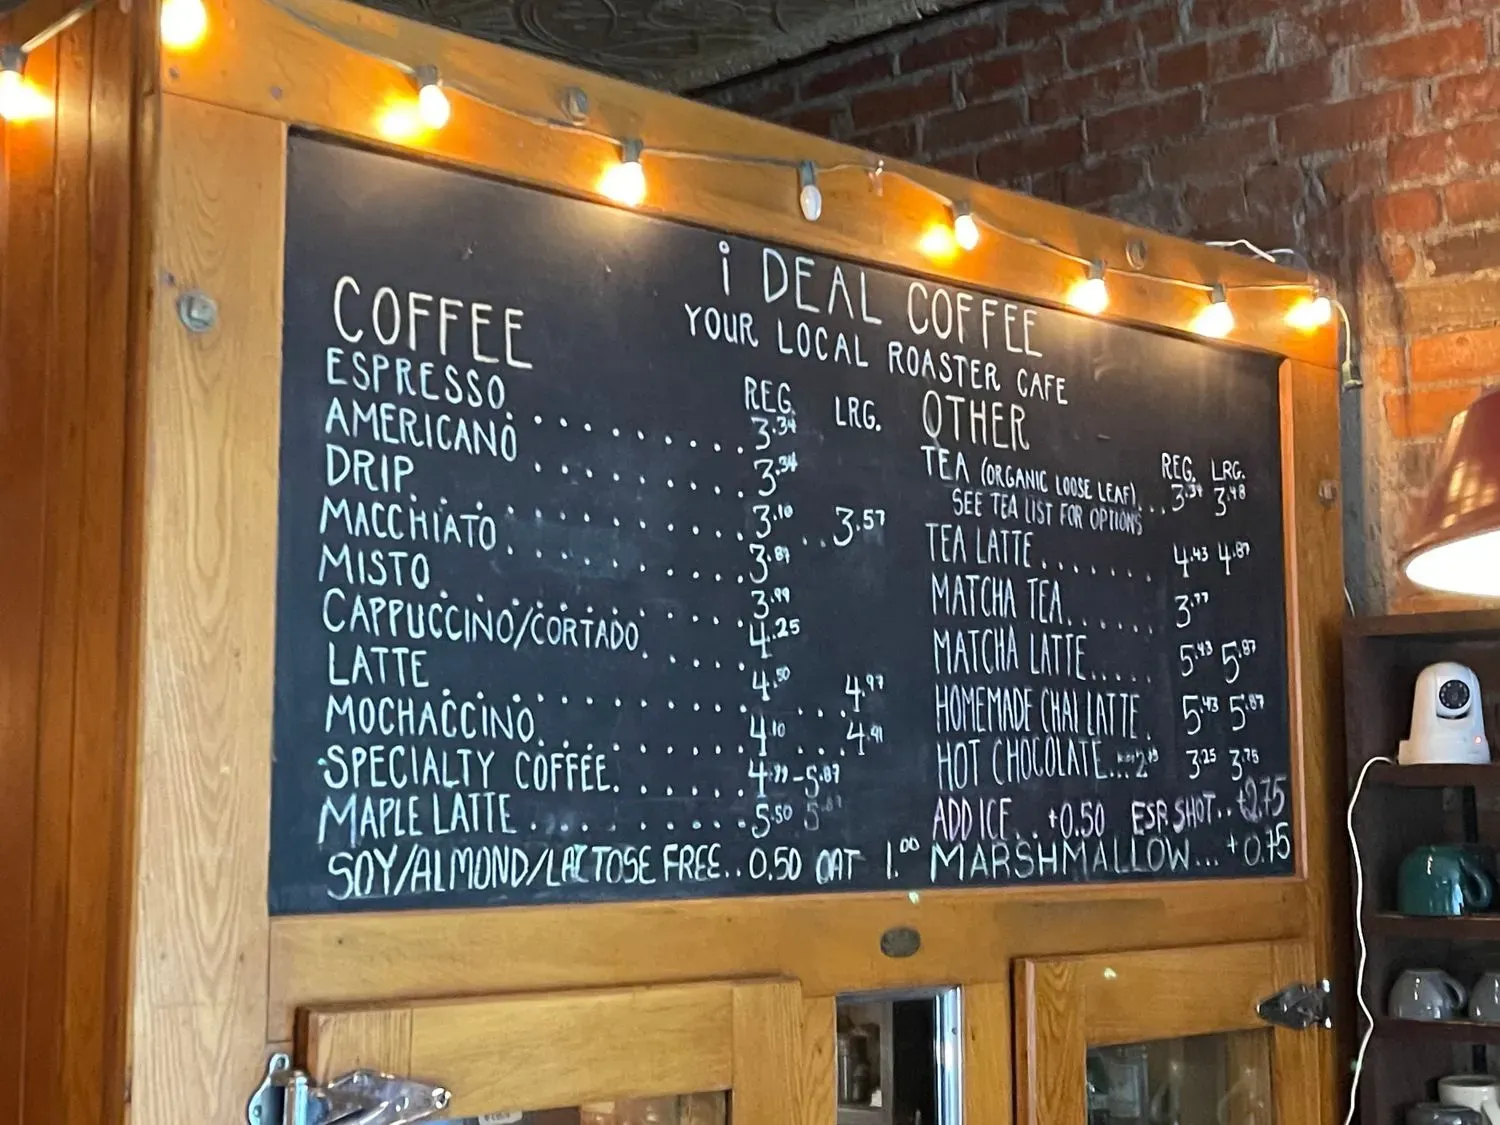 i DEAL COFFEE
YOUR LOCAL ROASTER CAFE
COFFEE
REG. LRG.
ESPRESSO.......... 3.34
AMERICANO......... 3.34
DRIP............ 3.10 .. 3.57
MACCHIATO.......... 3.89
MISTO............ 3.99
CAPPUCCINO/CORTADO..... 4.25
LATTE............ 4.50 ... 4.97
MOCHACCINO......... 4.10 ... 4.91
SPECIALTY COFFEE...... 4.99-5.87
MAPLE LATTE......... 5.50
SOY/ALMOND/LACTOSE FREE..0.50 OAT 1.00
OTHER
REG. LRG.
TEA (ORGANIC LOOSE LEAF)... 3.34 3.48
SEE TEA LIST FOR OPTIONS
TEA LATTE....... 4.43 4.87
MATCHA TEA...... 3.77
MATCHA LATTE..... 5.43 5.87
HOMEMADE CHAI LATTE. 5.43 5.87
HOT CHOCOLATE... 3.25 3.75
ADD ICE...+0.50 ESP. SHOT..+2.75
MARSHMALLOW...+0.75